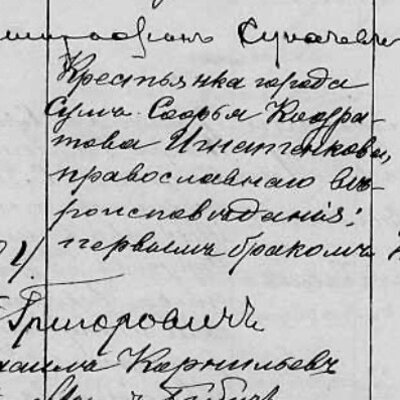 Крестьянка города
Сумъ Софья Кодра-
това Игнатенкова,
православнаго вѣ-
роисповѣданія;
первымъ бракомъ
Григоровичъ
Карнильевъ